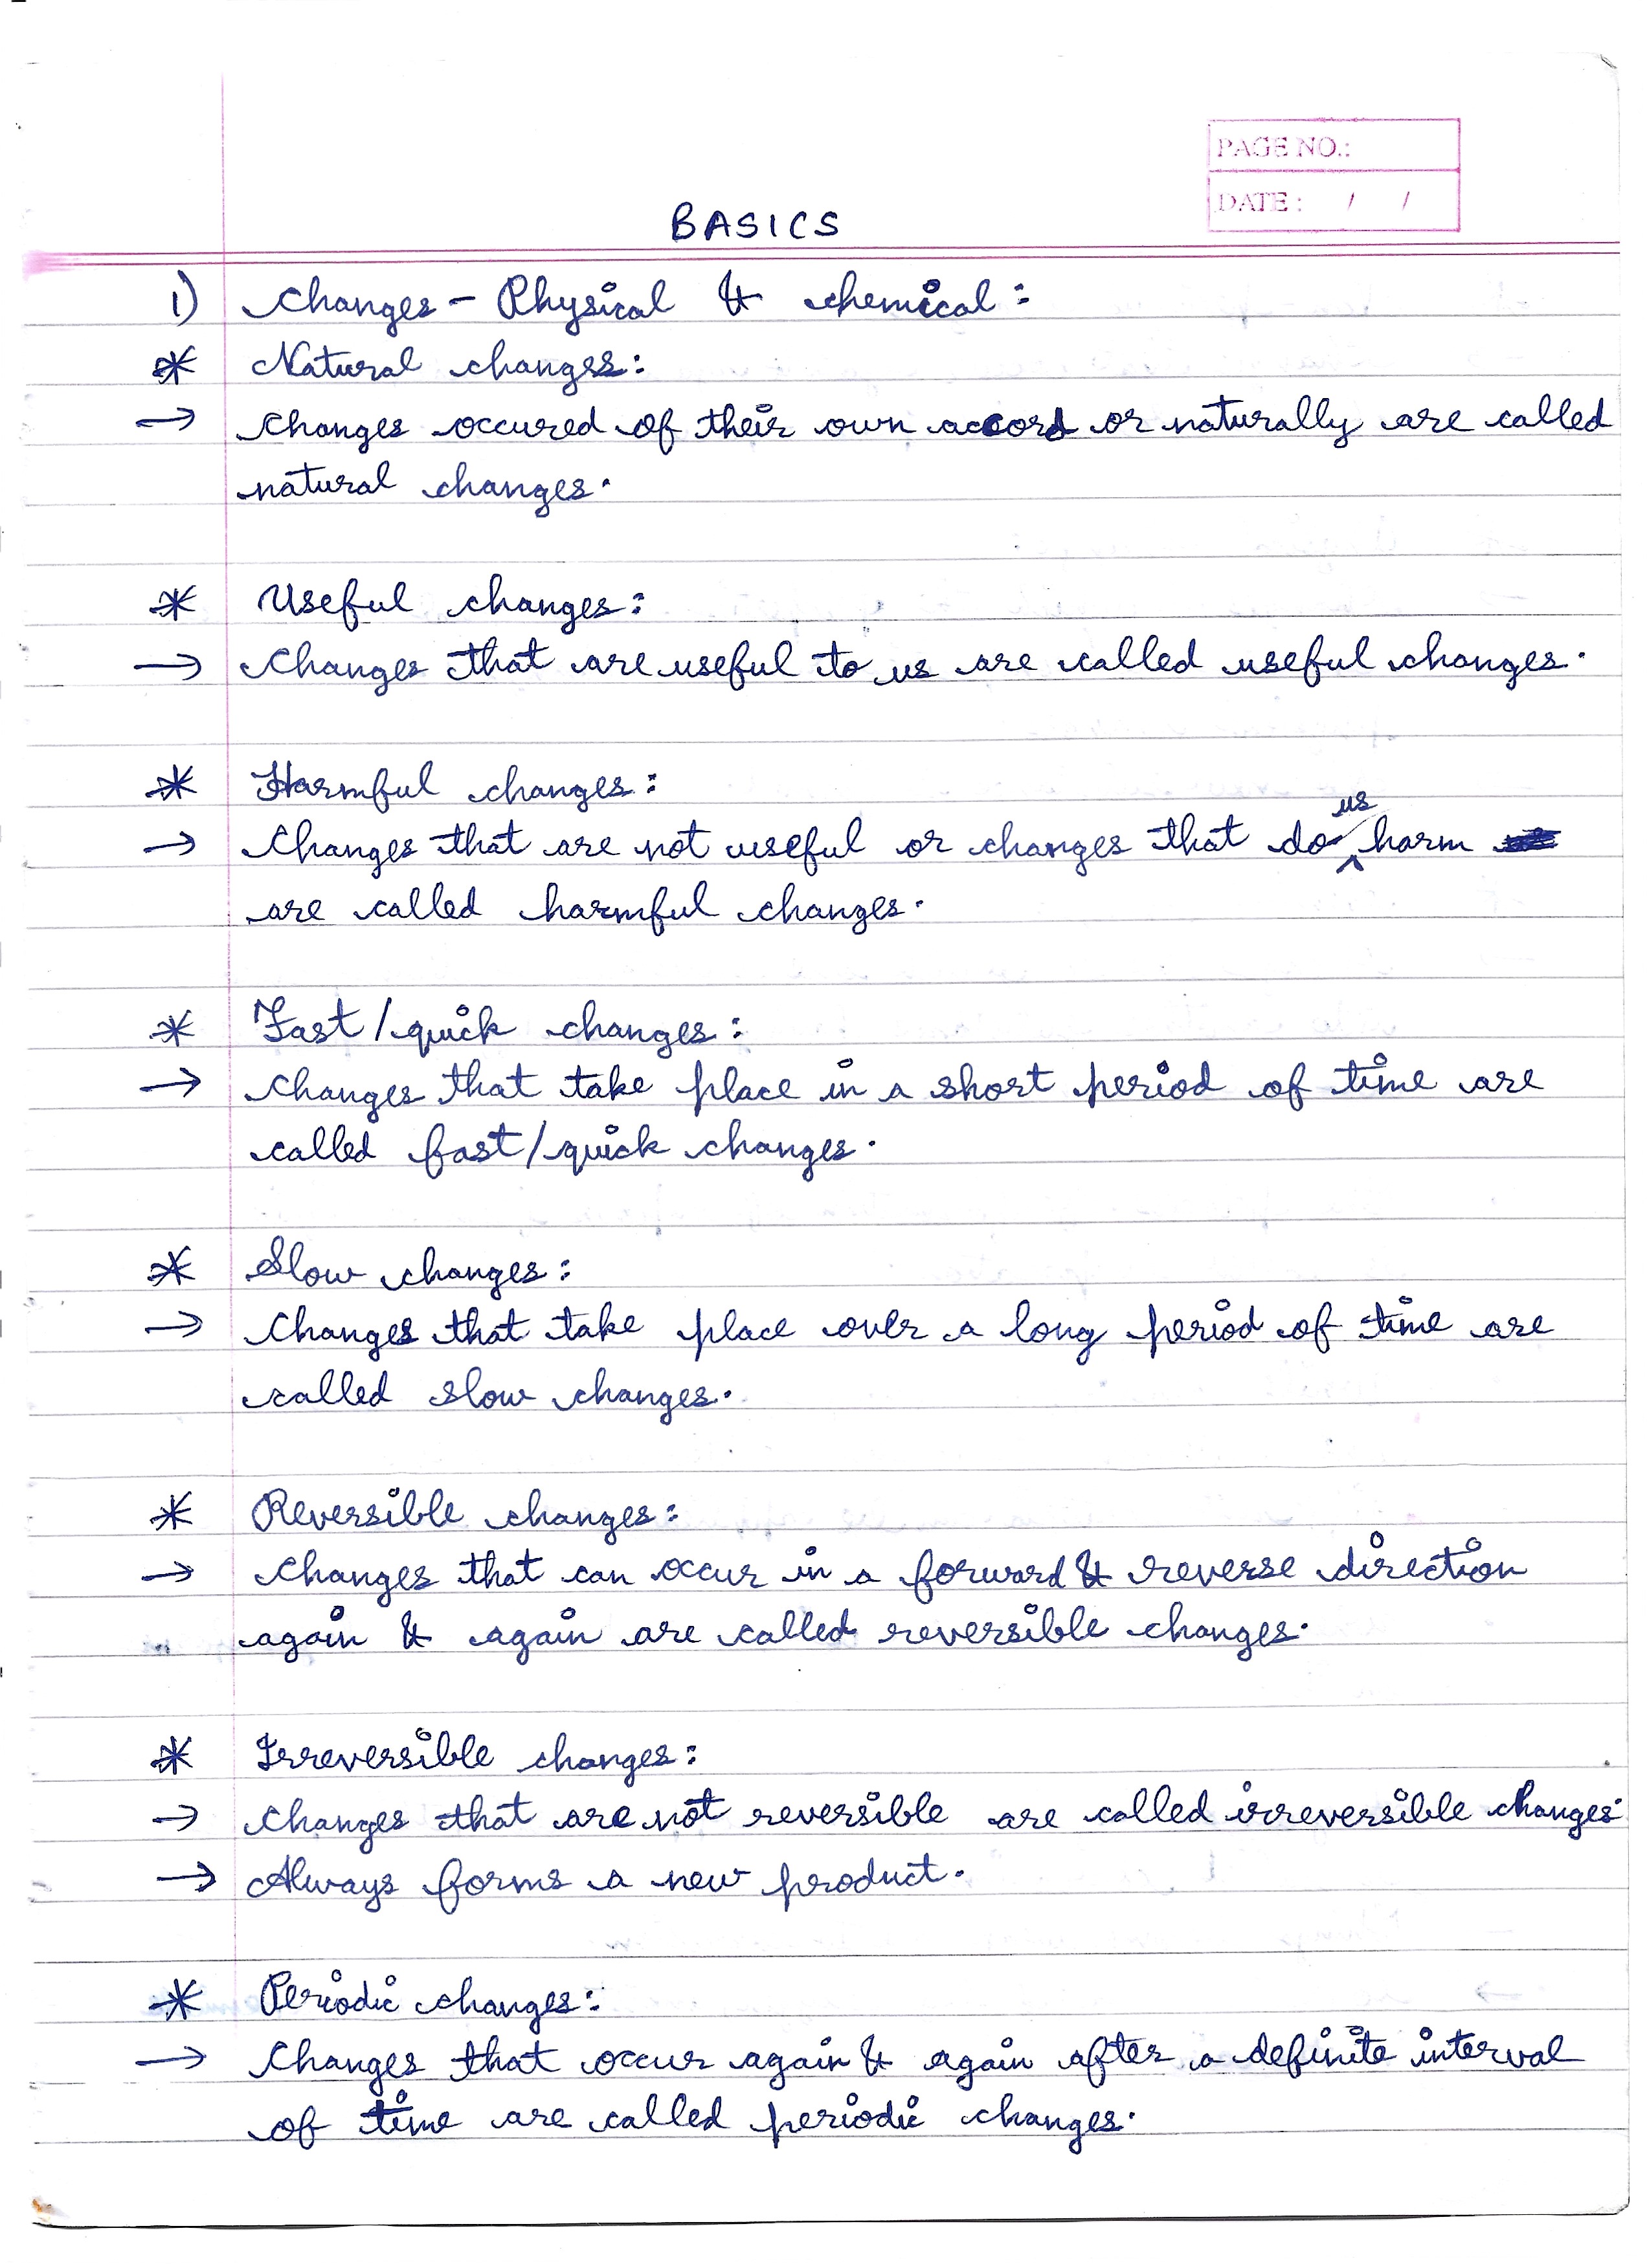 PAGE NO.:
DATE : / /
BASICS
1) Changes - Physical & chemical :
* Natural changes :
→ Changes occured of their own accord or naturally are called
natural changes.
* Useful changes :
→ Changes that are useful to us are called useful changes.
* Harmful changes :
→ Changes that are not useful or changes that do us harm
are called harmful changes.
* Fast/quick changes :
→ Changes that take place in a short period of time are
called fast/quick changes.
* Slow changes :
→ Changes that take place over a long period of time are
called slow changes.
* Reversible changes :
→ Changes that can occur in a forward & reverse direction
again & again are called reversible changes.
* Irreversible changes :
→ Changes that are not reversible are called irreversible changes.
→ Always forms a new product.
* Periodic changes :
→ Changes that occur again & again after a definite interval
of time are called periodic changes.